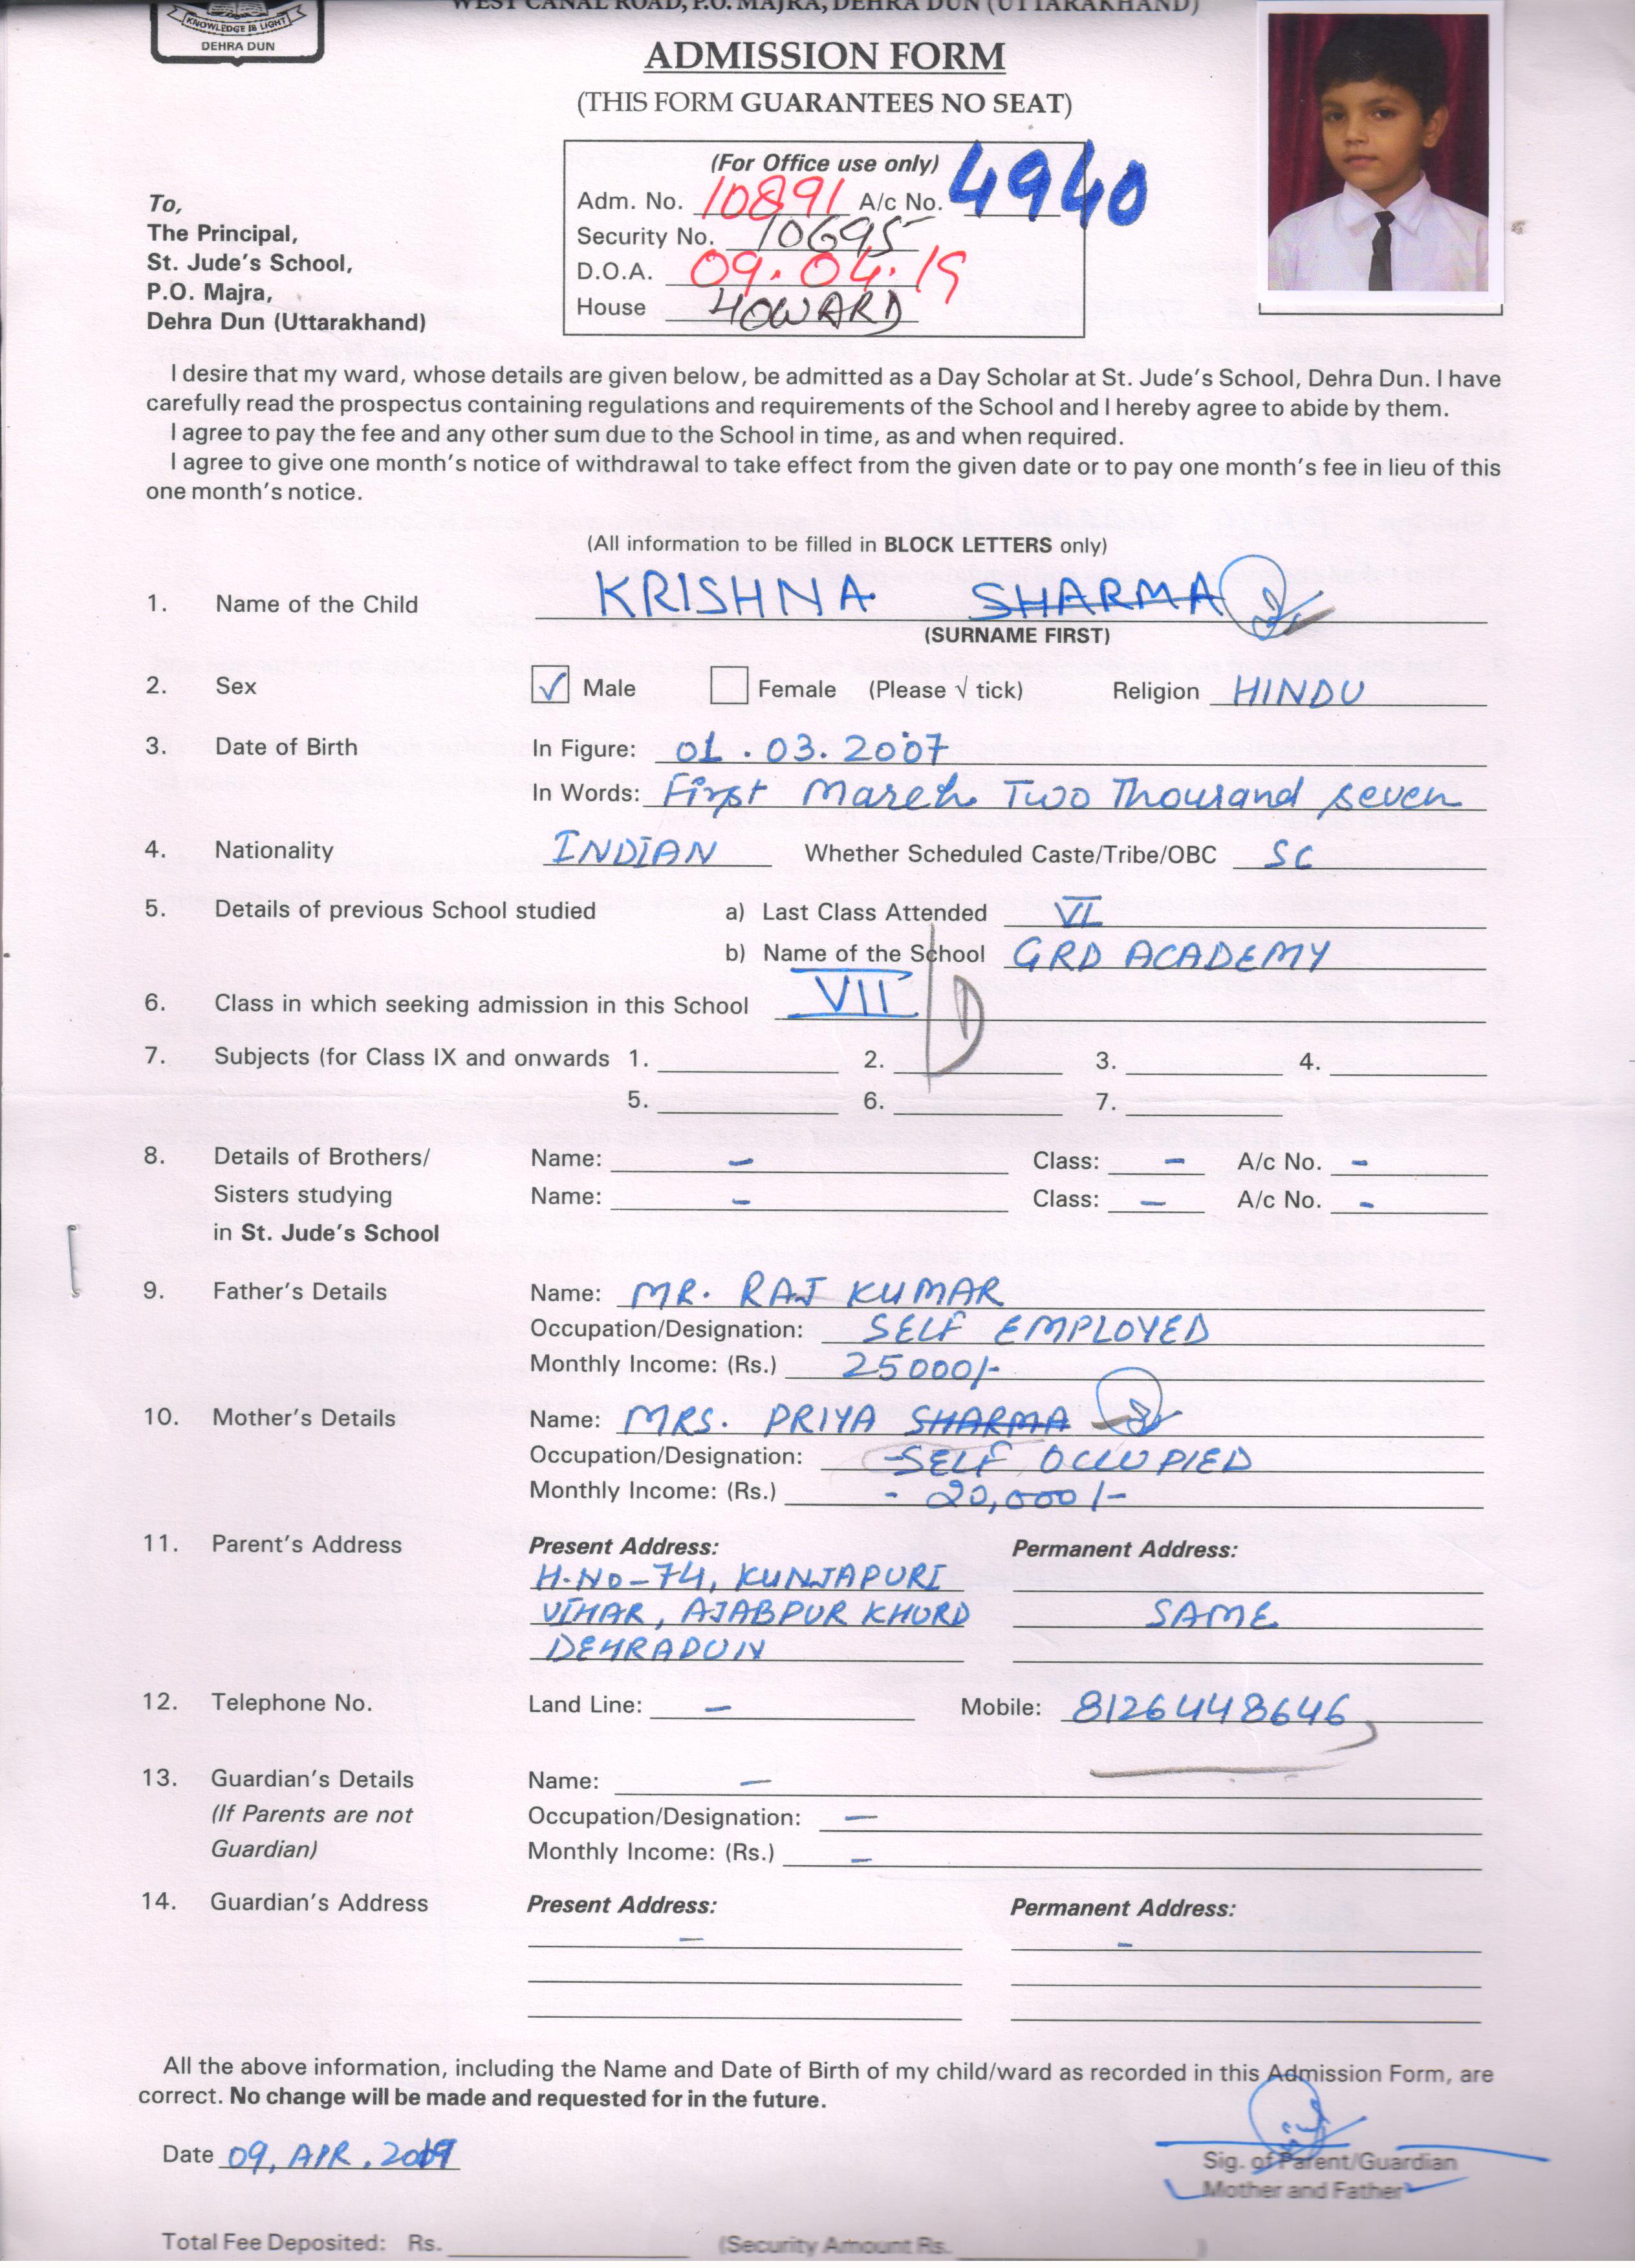 WEST CANAL ROAD, P.O. MAJRA, DEHRA DUN (UTTARAKHAND)
KNOWLEDGE IS LIGHT
DEHRA DUN
ADMISSION FORM
(THIS FORM GUARANTEES NO SEAT)
(For Office use only)
Adm. No. 10891 A/c No. 4940
Security No. 10695
D.O.A. 09.04.19
House HOWARD
To,
The Principal,
St. Jude's School,
P.O. Majra,
Dehra Dun (Uttarakhand)
I desire that my ward, whose details are given below, be admitted as a Day Scholar at St. Jude's School, Dehra Dun. I have
carefully read the prospectus containing regulations and requirements of the School and I hereby agree to abide by them.
I agree to pay the fee and any other sum due to the School in time, as and when required.
I agree to give one month's notice of withdrawal to take effect from the given date or to pay one month's fee in lieu of this
one month's notice.
(All information to be filled in BLOCK LETTERS only)
1. Name of the Child KRISHNA SHARMA
(SURNAME FIRST)
2. Sex ✓ Male Female (Please √ tick) Religion HINDU
3. Date of Birth In Figure: 01.03.2007
In Words: First March Two Thousand seven
4. Nationality INDIAN Whether Scheduled Caste/Tribe/OBC SC
5. Details of previous School studied a) Last Class Attended VI
b) Name of the School GRD ACADEMY
6. Class in which seeking admission in this School VII D
7. Subjects (for Class IX and onwards 1. 2. 3. 4.
5. 6. 7.
8. Details of Brothers/ Name: – Class: – A/c No. –
Sisters studying Name: – Class: – A/c No. –
in St. Jude's School
9. Father's Details Name: MR. RAJ KUMAR
Occupation/Designation: SELF EMPLOYED
Monthly Income: (Rs.) 25000/-
10. Mother's Details Name: MRS. PRIYA SHARMA
Occupation/Designation: -SELF OCCUPIED
Monthly Income: (Rs.) - 20,000/-
11. Parent's Address Present Address: Permanent Address:
H.NO-74, KUNJAPURI
VIHAR, AJABPUR KHURD SAME
DEHRADUN
12. Telephone No. Land Line: – Mobile: 8126448646
13. Guardian's Details Name: –
(If Parents are not Occupation/Designation: –
Guardian) Monthly Income: (Rs.) –
14. Guardian's Address Present Address: Permanent Address:
– –
All the above information, including the Name and Date of Birth of my child/ward as recorded in this Admission Form, are
correct. No change will be made and requested for in the future.
Date 09, APR, 2019
Sig. of Parent/Guardian
Mother and Father
Total Fee Deposited: Rs. (Security Amount Rs. )